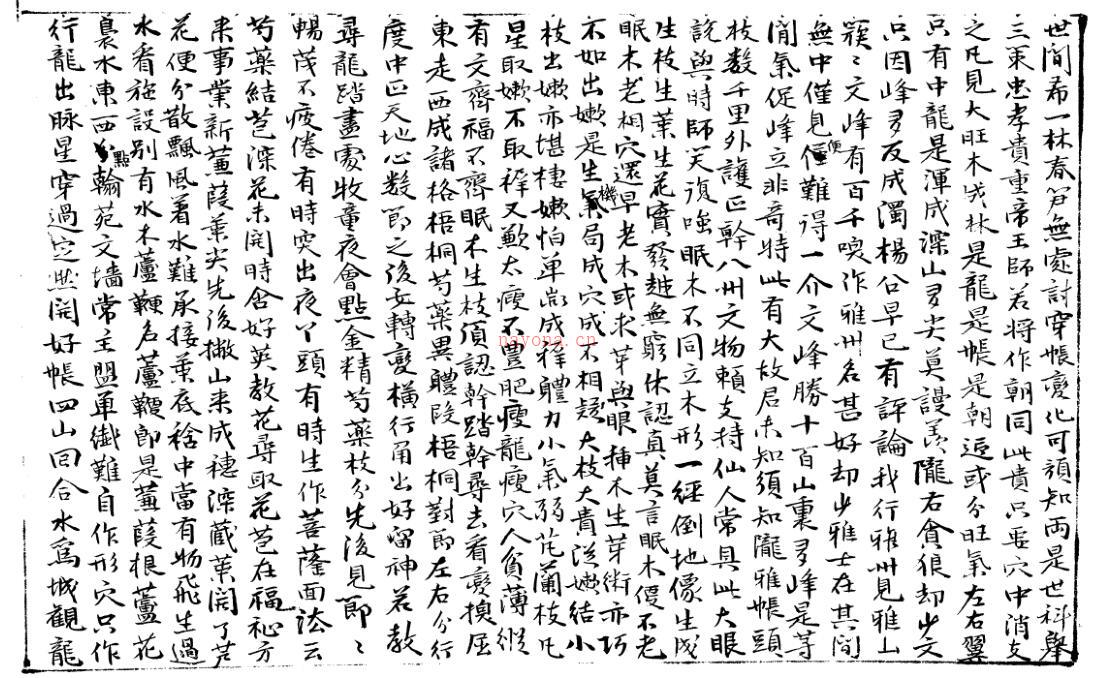 世間希一林春笋無處討穿帳變化可預知両是世科舉
三東忠孝貴重帝王師若將作朝同此貴只要穴中消支
之凡見大旺木成林是龍是帳是朝迎或分旺氣左右翼
只有中龍是渾成深山多尖莫謾羡隴右貪狼却少文
只因峰多反成濁楊公早已有評論我行雅州見雅山
簇〻文峰有百千喚作雅州名甚好却少雅士在其間
無中僅見便難得一介文峰勝十百山裏多峰是等
閒氣促峰立非奇特此有大故居未知須知隴雅帳頭
枝数千里外護正幹八州文物頼支持仙人常具此大眼
說與時師笑復嗤眠木不同立木形一經倒地像生成
生枝生葉生花實發越無窮休認真莫言眠木偃不老
眠木老桐穴還早老木或求芽與眼插木生芽術亦巧
不如出嫩是生氣機局成穴成不相疑大枝大貴從嫩結小
枝出嫩亦堪棲嫩怕单微成穉體力小氣弱芷蘭枝凡
星取嫩不取穉又歉太瘦不豐肥瘦龍瘦穴人貧薄縱
有文齊福不齊眠木生枝須認幹踏幹尋去看變換屈
東走西成諸格梧桐芍藥異體段梧桐對節左右分行
度中正天地心数節之後女轉變橫行甬出好留神若教
尋龍踏盡處牧童夜會點金精芍藥枝分先後見節〻
暢茂不疲倦有時突出夜丫頭有時生作菩薩面訟云
芍藥結苞深花未開時舍好英教花尋取花苞在福祉方
来事業新蘆葭葉尖先後撇山来成穗深藏葉開了芦
花便分散飄風着水難承接葉底稔中當有物飛生過
水看施設别有水木蘆鞭名蘆鞭即是蘆葭根蘆花
裊水東西點翰苑文墙常主盟单纖難自作形穴只作
行龍出脉星穿過定然開好帳四山回合水為城觀龍
nayona.cn